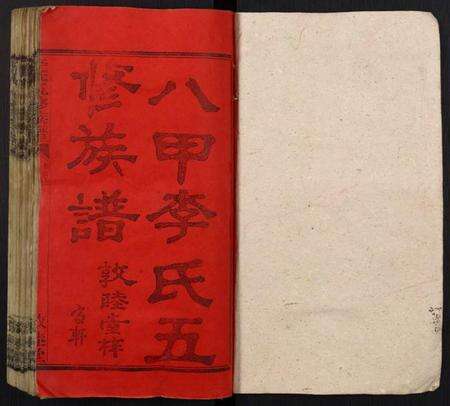 八甲李氏五
修族譜
敦睦堂梓